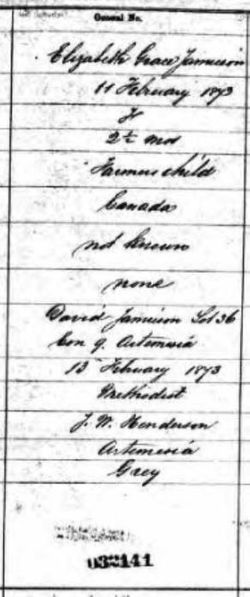 General No.
Elizabeth Grace Jamieson
11 February 1873
F
2½ mos
Farmers child
Canada
not known
none
David Jamieson Lot 36
Con 9. Artemesia
13 February 1873
Methodist
J. W. Henderson
Artemesia
Grey
032141